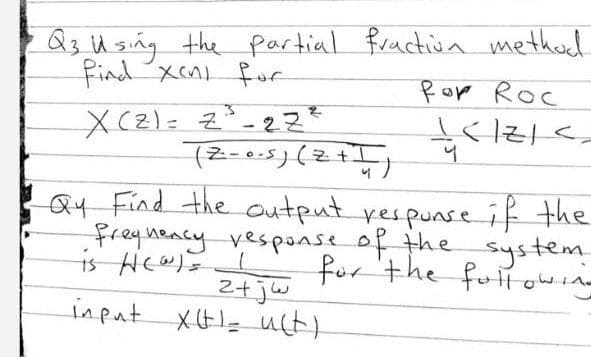 Q3 Using the partial fraction method
find x(n) for
for ROC
X(z) = z³ - 2z²
(z - 0.5)(z + 1/4)
1/4 < |z| <
Q4 Find the output response if the
freqnency response of the system
is H(ω) = 1 / 2+jω for the following
input x(t) = u(t)